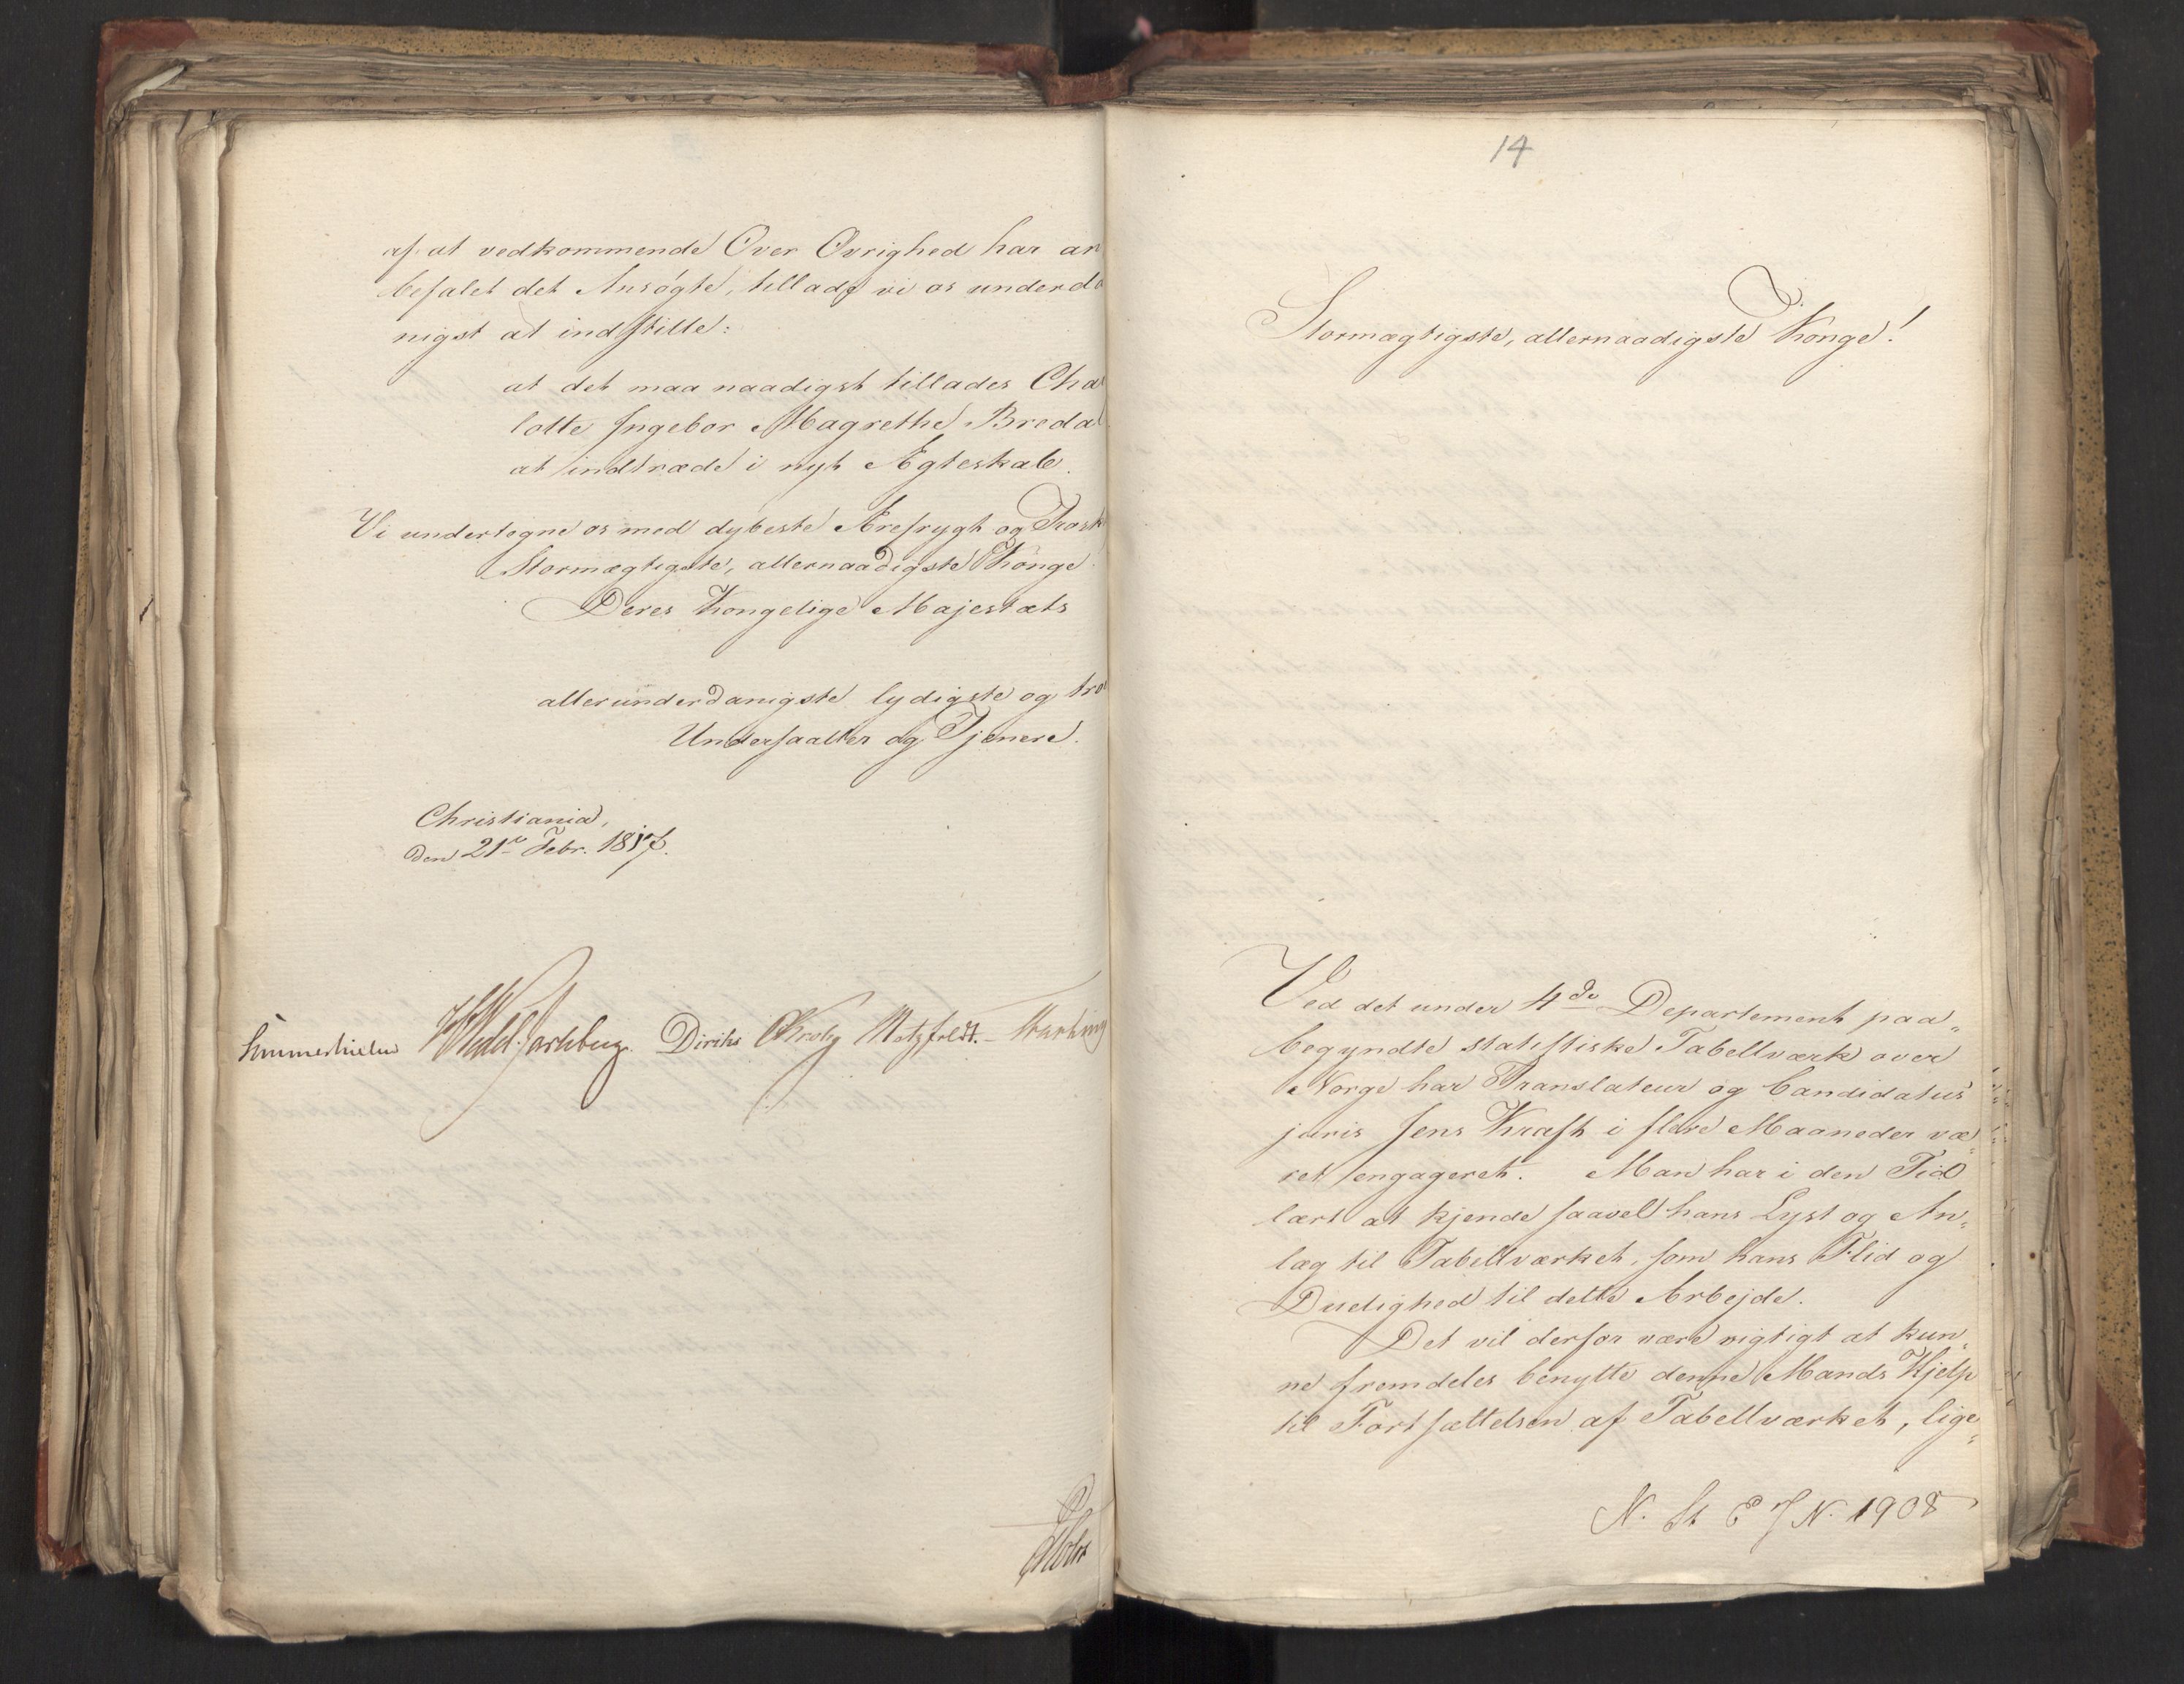 af at vedkommende Over Øvrighed har an
befalet det Ansøgte, tillade vi os underda
nigst at indstille:
at det maa naadigst tillades Cha
lotte Ingebor Magrethe Bredal
at indtræde i nyt Ægteskab.
Vi undertegne os med dybeste Ærefrygt og Trosk
Stormægtigste, allernaadigste Konge
Deres Kongelige Majestæts
allerunderdanigste lydigste og tro
Undersaatter og Tjenere.
Christiania,
den 21de Febr. 1817.
Sommerhielm Wedel Jarlsberg. Diriks Krohg Motzfeldt.
Holst
14
Stormægtigste, allernaadigste Konge!
Ved det under 4de Departement paa„
begyndte statistiske Tabellværk over
Norge har Translateur og Candidatus
juris Jens Kraft i flere Maaneder væ„
ret engageret. Man har i den Tid
lært at kjende saavel hans Lyst og An„
læg til Tabellværket, som hans Flid og
Duelighed til dette Arbejde.
Det vil derfor være vigtigt at kun„
ne fremdeles benytte denne Mands Hjelp
til Fortsættelsen af Tabellværket, lige„
N. St E J N. 1908